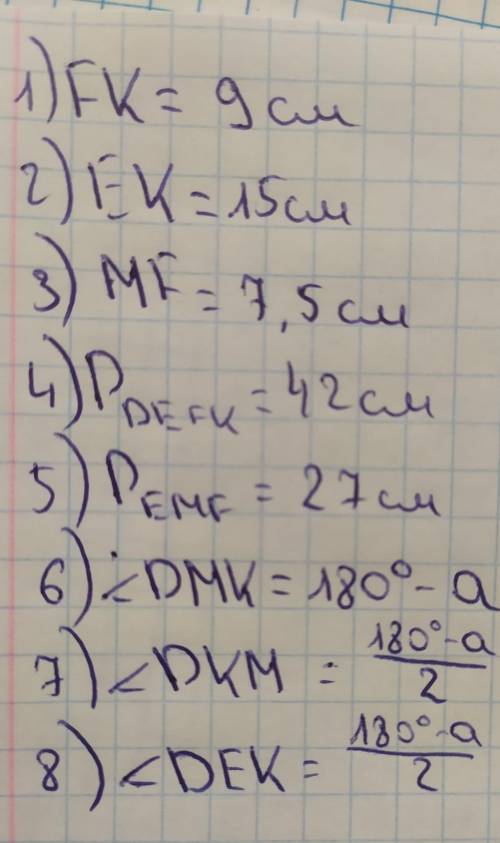 1) FK = 9 см
2) EK = 15 см
3) MF = 7,5 см
4) P DEFK = 42 см
5) P EMF = 27 см
6) ∠DMK = 180° - a
7) ∠DKM = 180° - a / 2
8) ∠DEK = 180° - a / 2